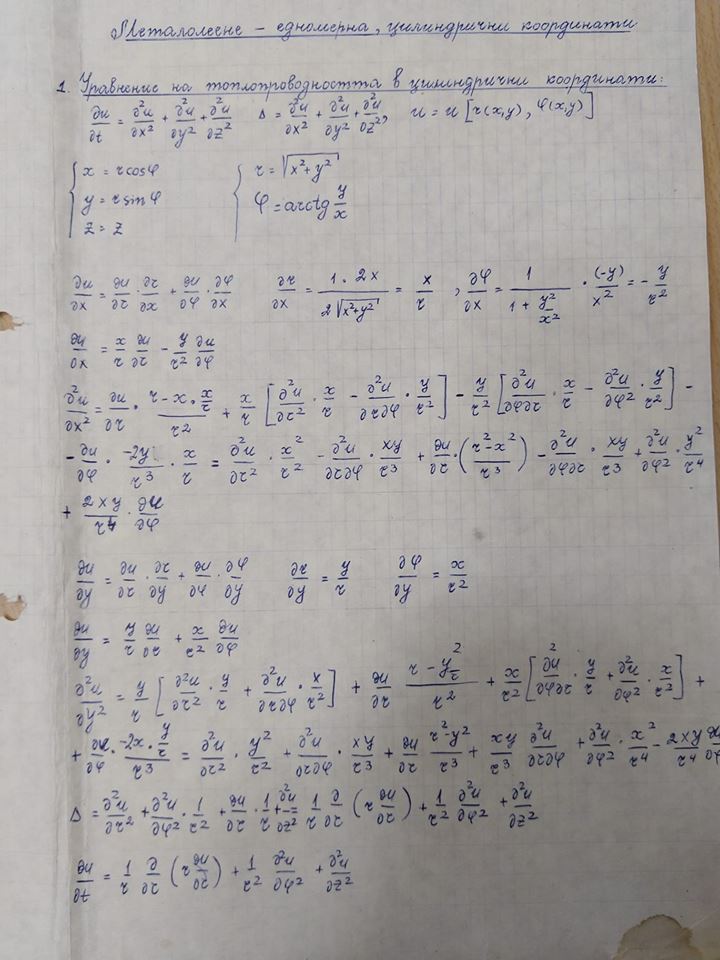 Металолеене – едномерна, цилиндрични координати
1. Уравнение на топлопроводността в цилиндрични координати:
∂u/∂t = ∂²u/∂x² + ∂²u/∂y² + ∂²u/∂z²   Δ = ∂²u/∂x² + ∂²u/∂y² + ∂²u/∂z²,   u = u[r(x,y), φ(x,y)]
{ x = r cosφ   { r = √(x²+y²)
y = r sinφ   φ = arctg y/x
z = z
∂u/∂x = ∂u/∂r · ∂r/∂x + ∂u/∂φ · ∂φ/∂x   ∂r/∂x = 1·2x / 2√(x²+y²) = x/r , ∂φ/∂x = 1/(1 + y²/x²) · (-y)/x² = - y/r²
∂u/∂x = x/r ∂u/∂r - y/r² ∂u/∂φ
∂²u/∂x² = ∂u/∂r · (r - x · x/r)/r² + x/r [∂²u/∂r² · x/r - ∂²u/∂r∂φ · y/r²] - y/r² [∂²u/∂φ∂r · x/r - ∂²u/∂φ² · y/r²] -
- ∂u/∂φ · -2y/r³ · x/r = ∂²u/∂r² · x²/r² - ∂²u/∂r∂φ · xy/r³ + ∂u/∂r · (r²-x²/r³) - ∂²u/∂φ∂r · xy/r³ + ∂²u/∂φ² · y²/r⁴
+ 2xy/r⁴ · ∂u/∂φ
∂u/∂y = ∂u/∂r · ∂r/∂y + ∂u/∂φ · ∂φ/∂y   ∂r/∂y = y/r   ∂φ/∂y = x/r²
∂u/∂y = y/r ∂u/∂r + x/r² ∂u/∂φ
∂²u/∂y² = y/r [∂²u/∂r² · y/r + ∂²u/∂r∂φ · x/r²] + ∂u/∂r (r - y²/r)/r² + x/r² [∂²u/∂φ∂r · y/r + ∂²u/∂φ² · x/r²] +
+ ∂u/∂φ · (-2x · y/r)/r³ = ∂²u/∂r² · y²/r² + ∂²u/∂r∂φ · xy/r³ + ∂u/∂r r²-y²/r³ + xy/r³ ∂²u/∂r∂φ + ∂²u/∂φ² · x²/r⁴ - 2xy/r⁴ ∂u/∂φ
Δ = ∂²u/∂r² + ∂²u/∂φ² · 1/r² + ∂u/∂r · 1/r + ∂²u/∂z² = 1/r ∂/∂r (r ∂u/∂r) + 1/r² ∂²u/∂φ² + ∂²u/∂z²
∂u/∂t = 1/r ∂/∂r (r ∂u/∂r) + 1/r² ∂²u/∂φ² + ∂²u/∂z²